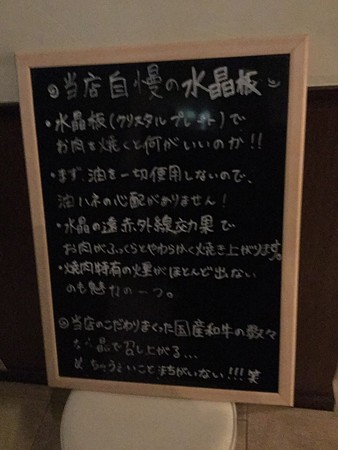 当店自慢の水晶板
・水晶板(クリスタルプレート)で
お肉を焼くと何がいいのか!!
・まず、油を一切使用しないので、
油ハネの心配がありません!
・水晶の遠赤外線効果で
お肉がふっくらとやわらかく焼き上がります。
・焼肉特有の煙がほとんど出ない
のも魅力の一つ。
◎当店のこだわりまくった国産和牛の数々
晶で召し上がる...
いことまちがいない!!!笑